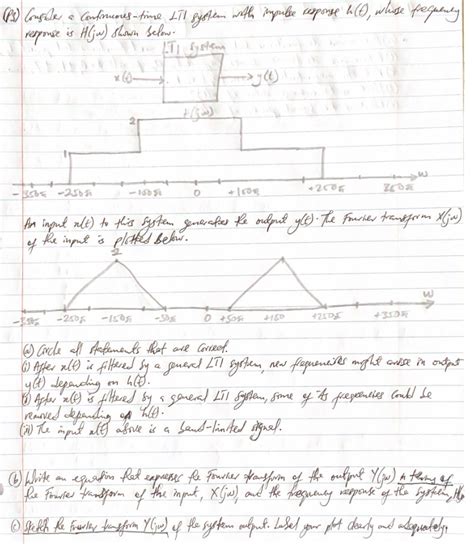 (P3) Consider a continuous-time LTI system with impulse response h(t), whose frequency
response is H(jw) shown below.
LTI System
x(t) y(t)
H(jw)
2
1
w
-350π -250π -150π 0 +150π +250π 350π
An input x(t) to this system generates the output y(t). The Fourier transform X(jw)
of the input is plotted below.
2
w
-350π -250π -150π -50π 0 +50π +150 +250π +350π
(a) Circle all statements that are correct.
(i) After x(t) is filtered by a general LTI system, new frequencies might arise in output
y(t) depending on h(t).
(ii) After x(t) is filtered by a general LTI system, some of its frequencies could be
removed depending on h(t).
(iii) The input x(t) above is a band-limited signal.
(b) Write an equation that expresses the Fourier transform of the output Y(jw) in terms of
the Fourier transform of the input, X(jw), and the frequency response of the system,
(c) Sketch the Fourier transform Y(jw) of the system output. Label your plot clearly and adequately.